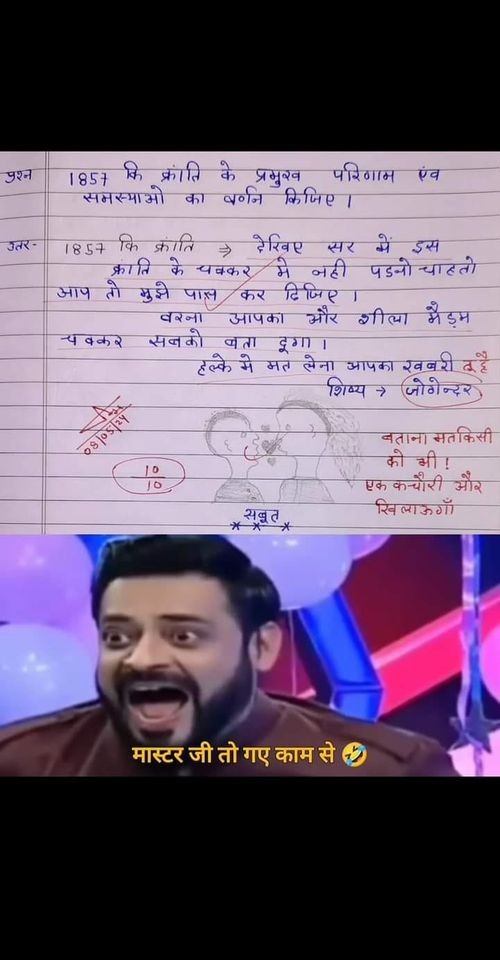 प्रश्न 1857 कि क्रांति के प्रमुख परिणाम एंव
समस्याओ का वर्णन किजिए।
उतर- 1857 कि क्रांति → देखिए सर में इस
क्रांति के चक्कर मे नही पडनो चाहतो
आप तो मुझे पास कर दिजिए।
वरना आपका और शीला मैडम
चक्कर सबको बता दूगा।
हल्के मे मत लेना आपका खबरी
शिष्य → जोगेन्दर
08/05/24
10
10
बताना मत किसी
को भी!
एक कचौरी और
खिलाऊगाँ
सबूत
मास्टर जी तो गए काम से 🤣